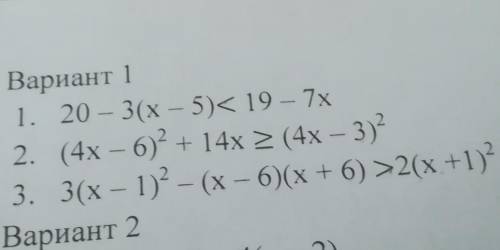 Вариант 1
1. 20 – 3(x – 5)< 19 – 7x
2. (4x – 6)² + 14x ≥ (4x – 3)²
3. 3(x – 1)² – (x – 6)(x + 6) >2(x +1)²
Вариант 2